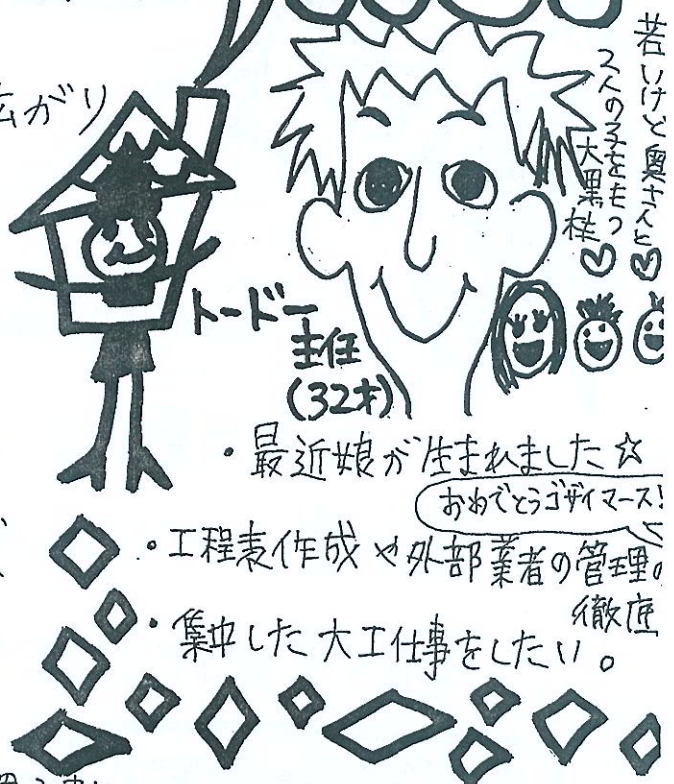 若いけど奥さんと♡
2人の子をもつ
大黒柱♡
広がり
トードー
主任
(32才)
・最近娘が生まれました☆
おめでとうゴザイマース!
・工程表作成や外部業者の管理。
徹底
・集中した大工仕事をしたい。